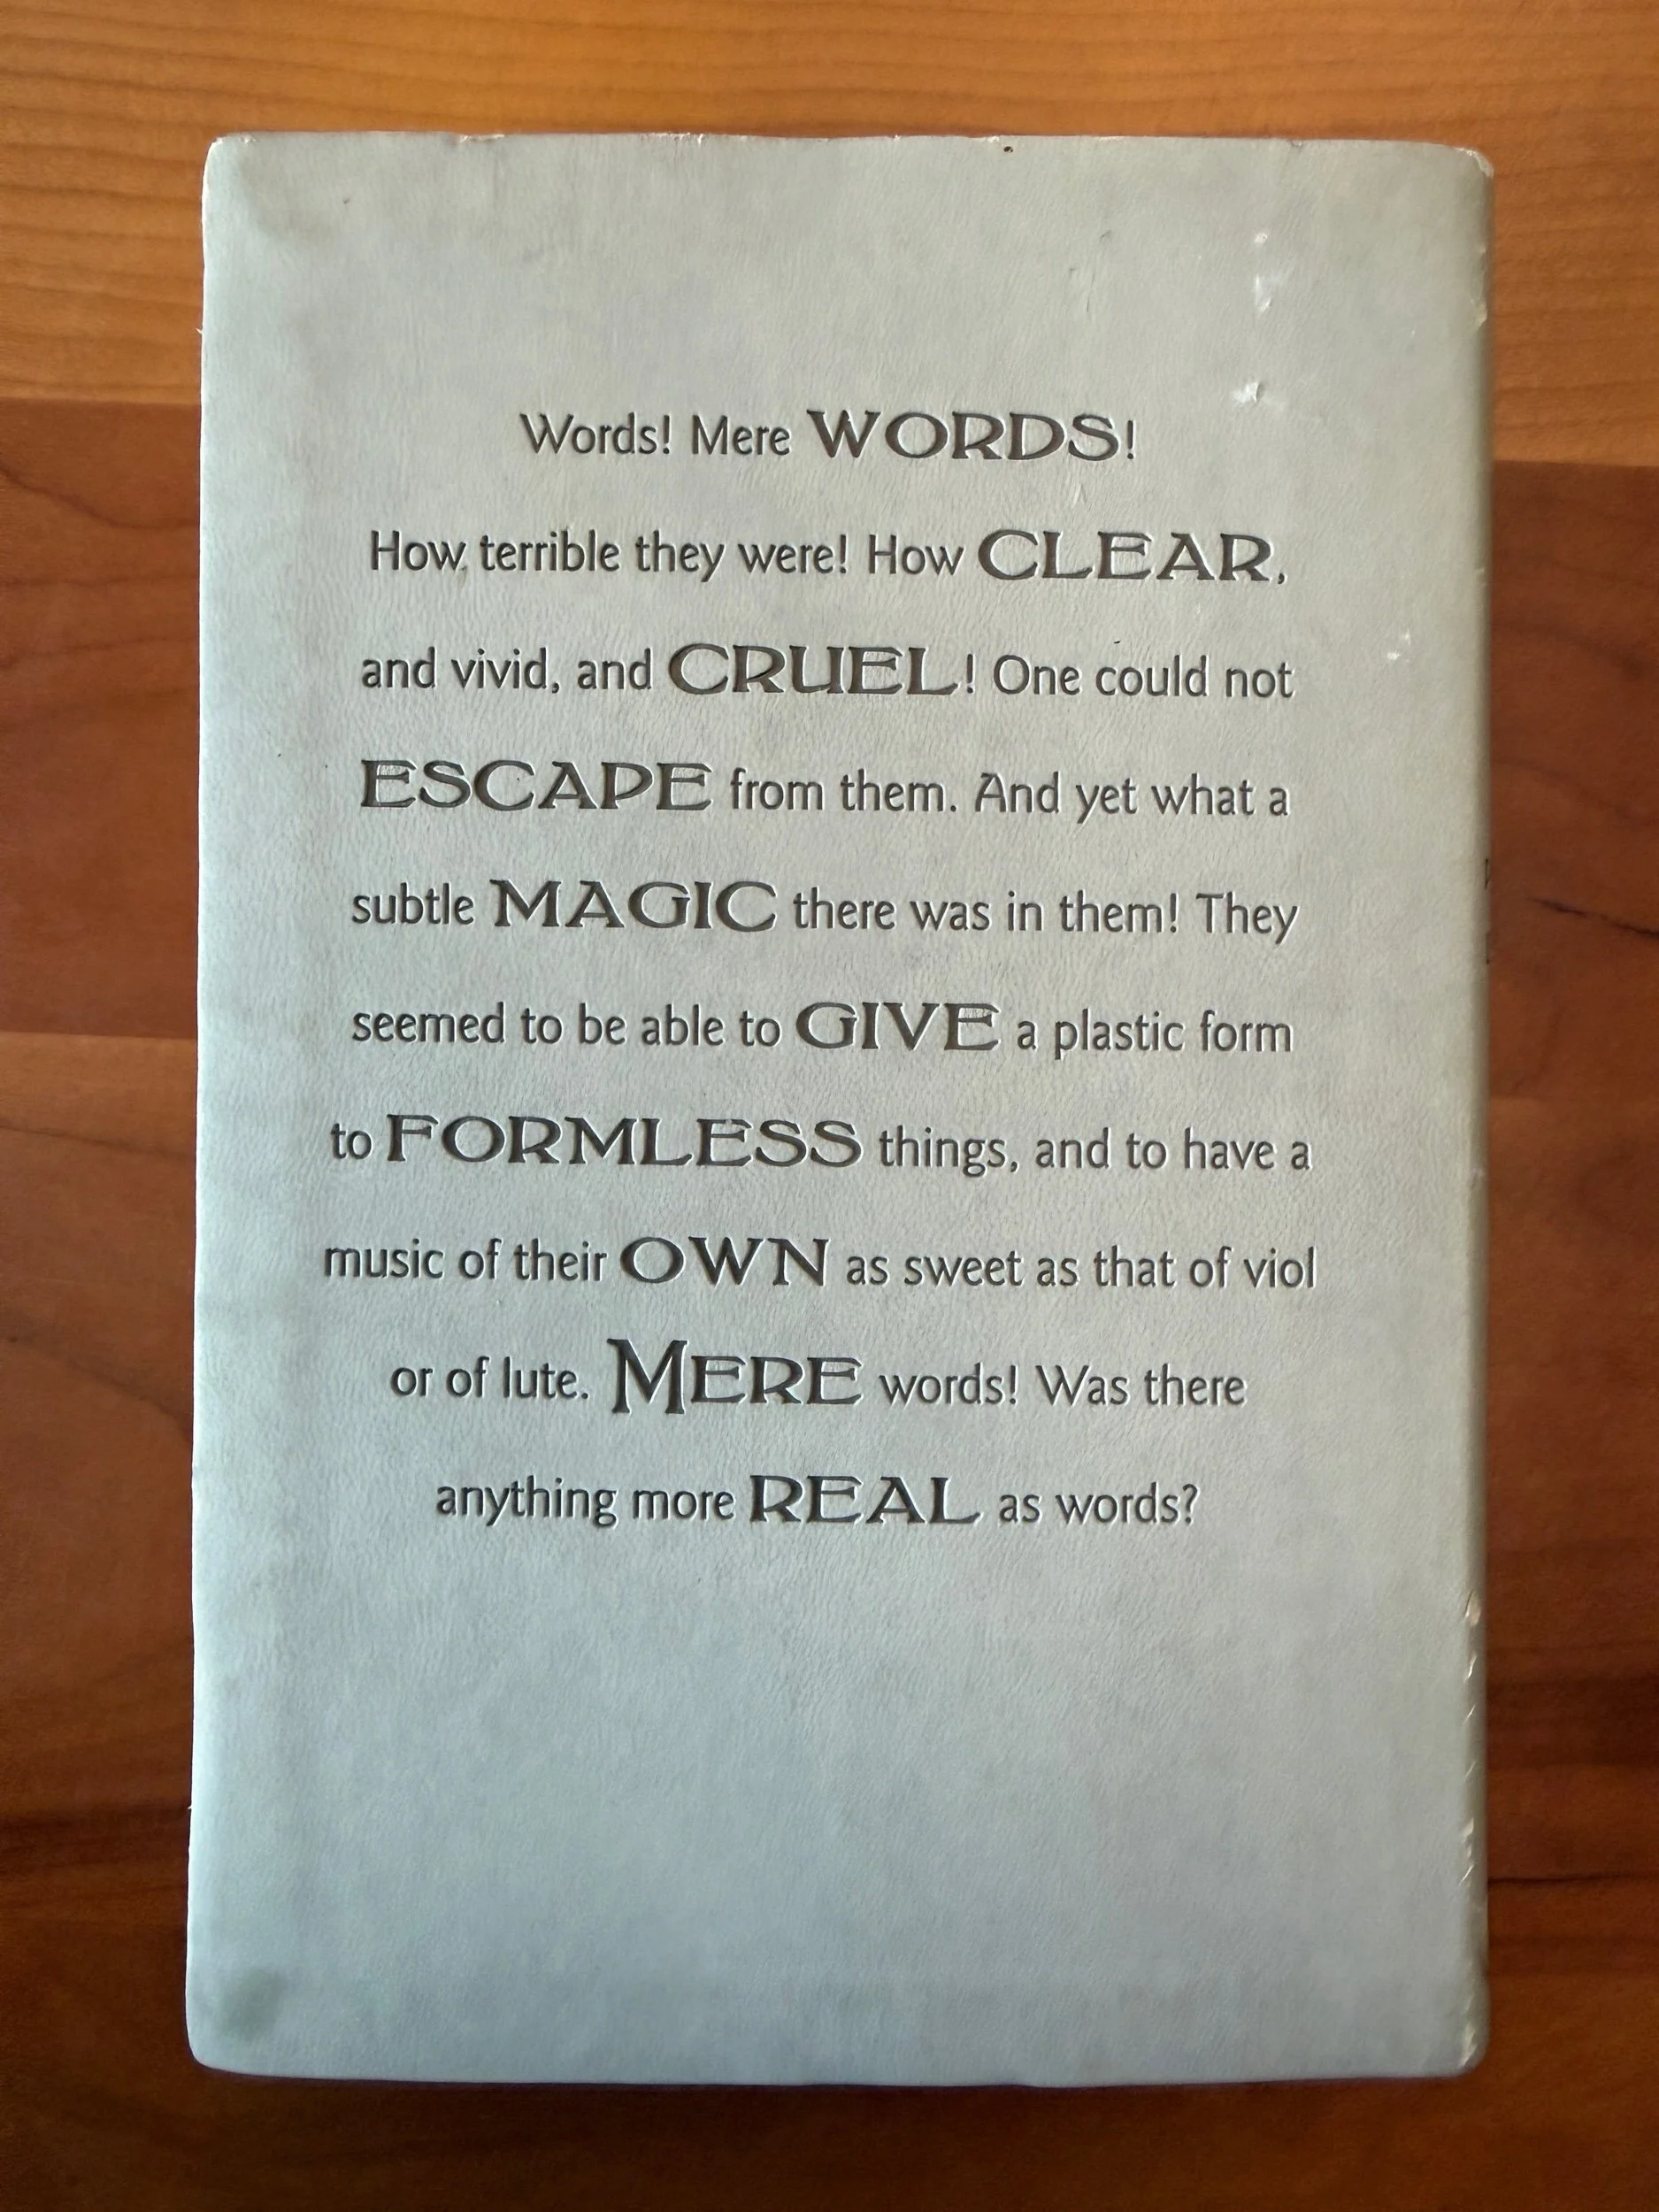 Words! Mere WORDS!
How terrible they were! How CLEAR,
and vivid, and CRUEL! One could not
ESCAPE from them. And yet what a
subtle MAGIC there was in them! They
seemed to be able to GIVE a plastic form
to FORMLESS things, and to have a
music of their OWN as sweet as that of viol
or of lute. MERE words! Was there
anything more REAL as words?